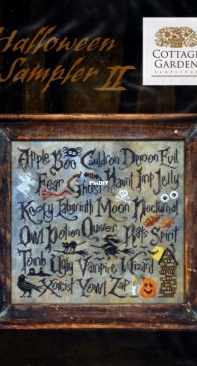 Halloween
Sampler II
COTTAGE
GARDEN
SAMPLINGS
Apple Boo Cauldron Demon Evil
Fear Ghost Haunt Imp Jelly
Kooky Labyrinth Moon Nocturnal
Owl Potion Quiver Rats Spirit
Tomb Ugly Vampire Wizard
Xorcist Yowl Zap